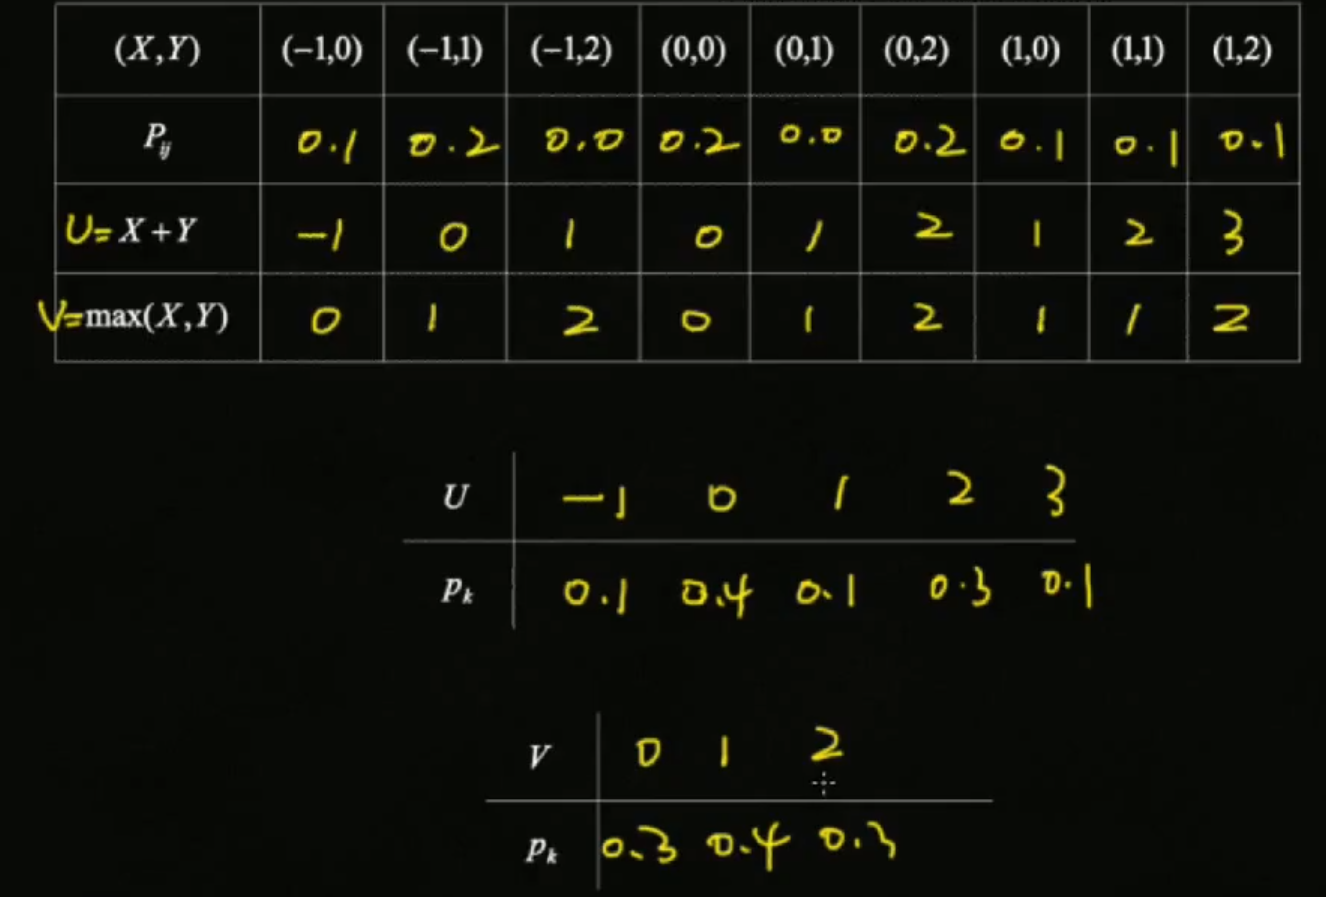 (X,Y) (−1,0) (−1,1) (−1,2) (0,0) (0,1) (0,2) (1,0) (1,1) (1,2)
P_ij 0.1 0.2 0.0 0.2 0.0 0.2 0.1 0.1 0.1
U=X+Y −1 0 1 0 1 2 1 2 3
V=max(X,Y) 0 1 2 0 1 2 1 1 2
U −1 0 1 2 3
p_k 0.1 0.4 0.1 0.3 0.1
V 0 1 2
p_k 0.3 0.4 0.3